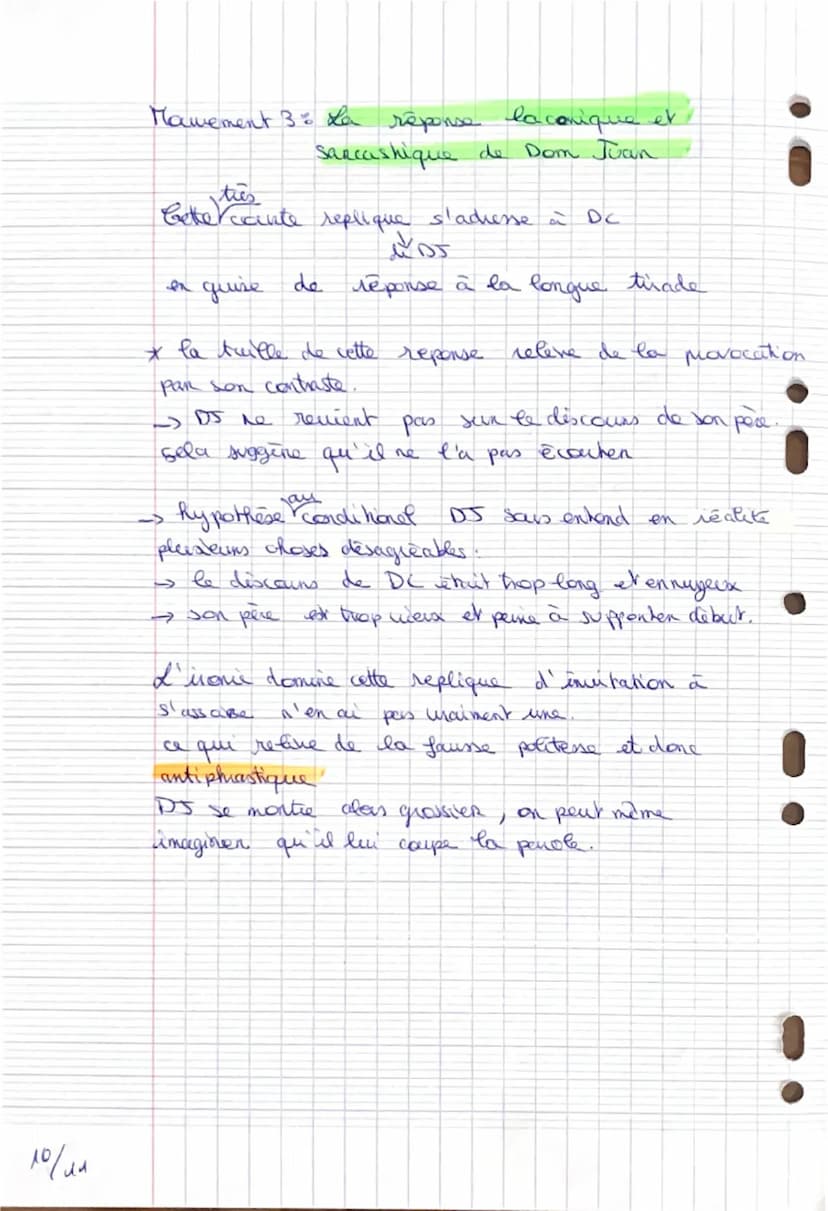 Mouvement 3 : La réponse laconique et
sarcastique de Dom Juan
Cette très courte replique s'adresse à DC
de DJ
en guise de réponse à la longue tirade
* la taille de cette reponse relève de la provocation
par son contraste.
-> DJ ne revient pas sur le discours de son père.
Cela suggère qu'il ne l'a pas écouter
-> hypothèse au conditionel DJ sous entend en réalité
plusieurs choses désagréables :
-> le discours de DC était trop long et ennuyeux
-> son père est trop vieux et peine à supporter debut.
L'ironie domine cette replique d'invitation à
s'assoise n'en ai pas vraiment une.
ce qui relève de la fausse politesse et donc
antiphrastique
DJ se montre alors grossier, on peut même
imaginer qu'il lui coupe la parole.
10/11